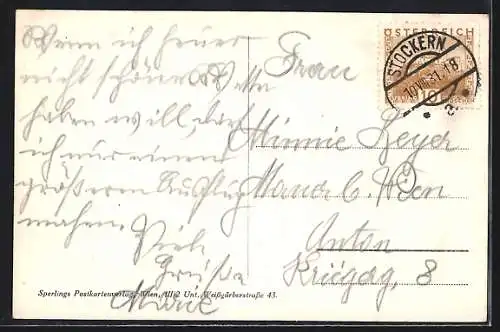 Wenn ich heuer
nicht schönes Wetter
haben will, darf
ich nur einen
größeren Ausflug
machen.
Viele
Grüße
Frau
Minnie Beyer
Mauer b. Wien
Anton
Kriegerg. 8
ÖSTERREICH
STOCKERN
10.VIII.31.18
a
10
GROSCHEN
Sperlings Postkartenverlag, Wien, III/2 Unt. Weißgärberstraße 43.